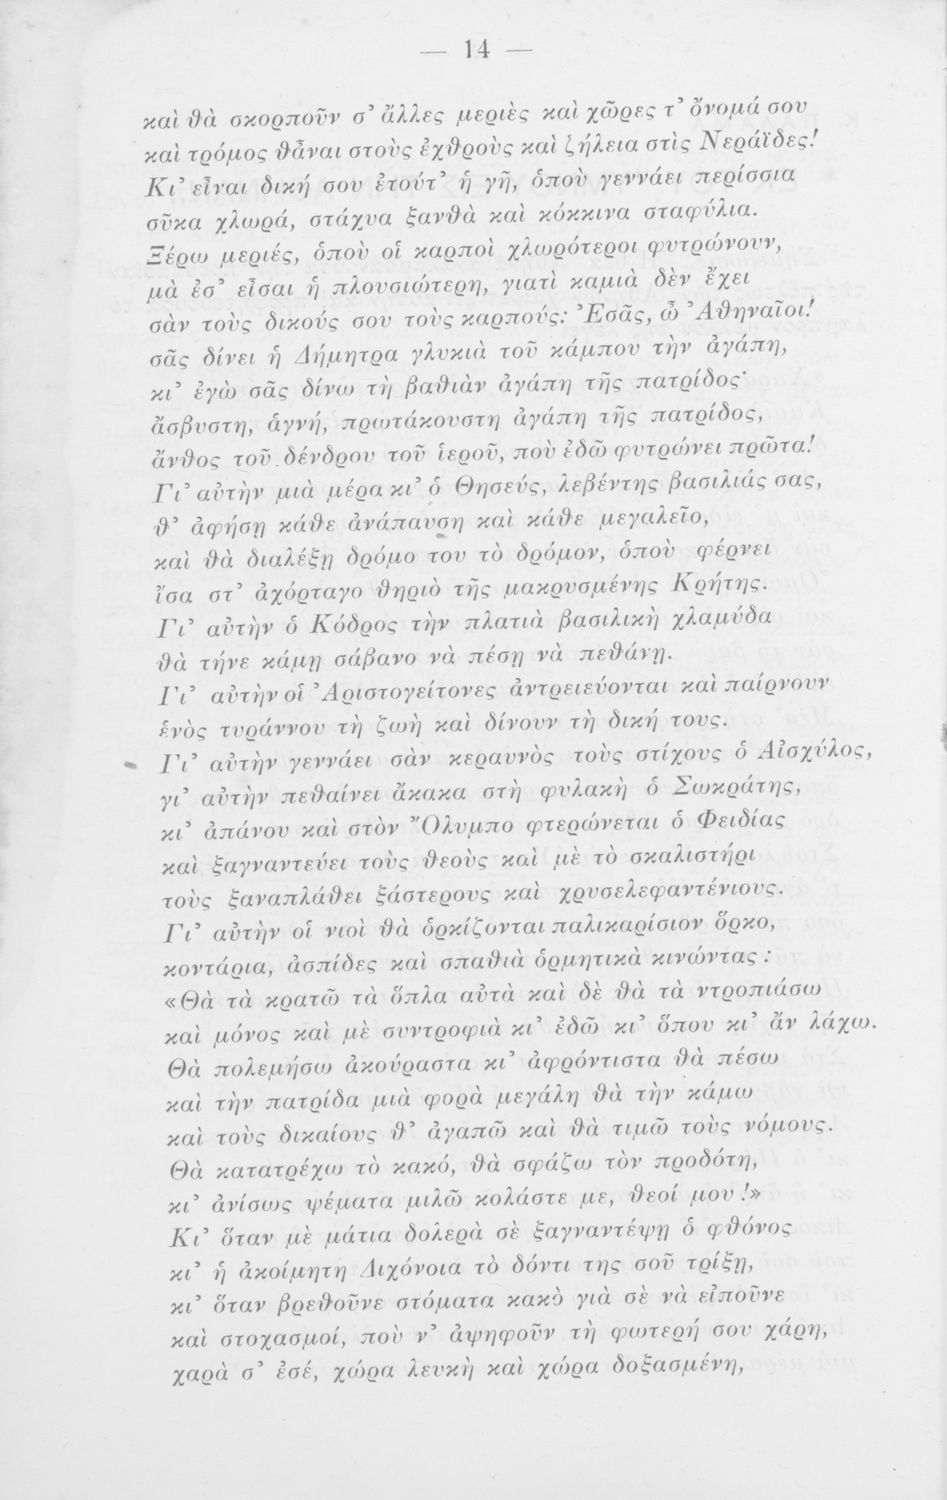 — 14 —
καὶ θὰ σκορποῦν σ᾽ ἄλλες μεριὲς καὶ χῶρες τ᾽ ὄνομά σου
καὶ τρόμος θἆναι στοὺς ἐχθροὺς καὶ ζήλεια στὶς Νεράϊδες!
Κι᾽ εἶναι δική σου ἐτούτ᾽ ἡ γῆ, ὁποὺ γεννάει περίσσια
σῦκα χλωρά, στάχυα ξανθὰ καὶ κόκκινα σταφύλια.
Ξέρω μεριές, ὁποὺ οἱ καρποὶ χλωρότεροι φυτρώνουν,
μὰ ἐσ᾽ εἶσαι ἡ πλουσιώτερη, γιατὶ καμιὰ δὲν ἔχει
σὰν τοὺς δικούς σου τοὺς καρπούς: Ἐσᾶς, ὦ Ἀθηναῖοι!
σᾶς δίνει ἡ Δήμητρα γλυκιὰ τοῦ κάμπου τὴν ἀγάπη,
κι᾽ ἐγὼ σᾶς δίνω τὴ βαθιὰν ἀγάπη τῆς πατρίδος·
ἄσβυστη, ἁγνή, πρωτάκουστη ἀγάπη τῆς πατρίδος,
ἄνθος τοῦ δένδρου τοῦ ἱεροῦ, ποὺ ἐδῶ φυτρώνει πρῶτα!
Γι᾽ αὐτὴν μιὰ μέρα κι᾽ ὁ Θησεύς, λεβέντης βασιλιάς σας,
θ᾽ ἀφήσῃ κάθε ἀνάπαυση καὶ κάθε μεγαλεῖο,
καὶ θὰ διαλέξῃ δρόμο του τὸ δρόμον, ὁποὺ φέρνει
ἴσα στ᾽ ἀχόρταγο θηριὸ τῆς μακρυσμένης Κρήτης.
Γι᾽ αὐτὴν ὁ Κόδρος τὴν πλατιὰ βασιλικὴ χλαμύδα
θὰ τήνε κάμῃ σάβανο νὰ πέσῃ νὰ πεθάνῃ.
Γι᾽ αὐτὴν οἱ Ἀριστογείτονες ἀντρειεύονται καὶ παίρνουν
ἑνὸς τυράννου τὴ ζωὴ καὶ δίνουν τὴ δική τους.
Γι᾽ αὐτὴν γεννάει σὰν κεραυνὸς τοὺς στίχους ὁ Αἰσχύλος,
γι᾽ αὐτὴν πεθαίνει ἄκακα στὴ φυλακὴ ὁ Σωκράτης,
κι᾽ ἀπάνου καὶ στὸν Ὄλυμπο φτερώνεται ὁ Φειδίας
καὶ ξαγναντεύει τοὺς θεοὺς καὶ μὲ τὸ σκαλιστήρι
τοὺς ξαναπλάθει ξάστερους καὶ χρυσελεφαντένιους.
Γι᾽ αὐτὴν οἱ νιοὶ θὰ ὁρκίζωνται παλικαρίσιον ὅρκο,
κοντάρια, ἀσπίδες καὶ σπαθιὰ ὁρμητικὰ κινώντας :
«Θὰ τὰ κρατῶ τὰ ὅπλα αὐτὰ καὶ δὲ θὰ τὰ ντροπιάσω
καὶ μόνος καὶ μὲ συντροφιὰ κι᾽ ἐδῶ κι᾽ ὅπου κι᾽ ἂν λάχω.
Θὰ πολεμήσω ἀκούραστα κι᾽ ἀφρόντιστα θὰ πέσω
καὶ τὴν πατρίδα μιὰ φορὰ μεγάλη θὰ τὴν κάμω
καὶ τοὺς δικαίους θ᾽ ἀγαπῶ καὶ θὰ τιμῶ τοὺς νόμους.
Θὰ κατατρέχω τὸ κακό, θὰ σφάζω τὸν προδότη,
κι᾽ ἀνίσως ψέματα μιλῶ κολάστε με, θεοί μου!»
Κι᾽ ὅταν μὲ μάτια δολερὰ σὲ ξαγναντέψῃ ὁ φθόνος
κι᾽ ἡ ἀκοίμητη Διχόνοια τὸ δόντι της σοῦ τρίξῃ,
κι᾽ ὅταν βρεθοῦνε στόματα κακὸ γιὰ σὲ νὰ εἰποῦνε
καὶ στοχασμοί, ποὺ ν᾽ ἀψηφοῦν τὴ φωτερή σου χάρη,
χαρὰ σ᾽ ἐσέ, χώρα λευκὴ καὶ χώρα δοξασμένη,